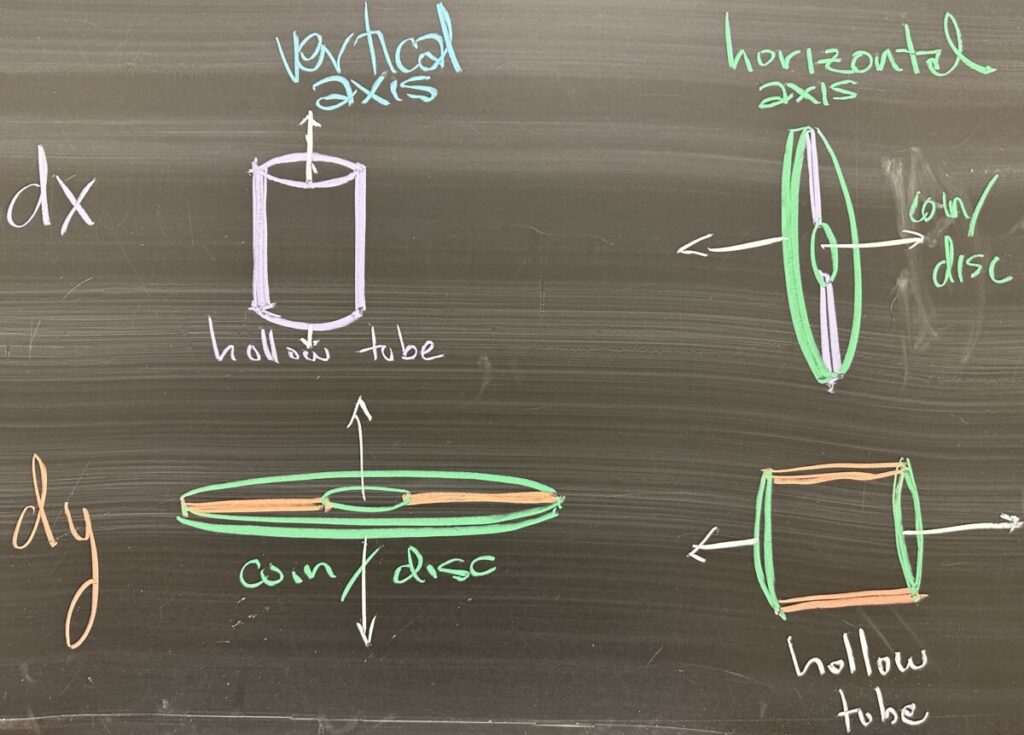 vertical
axis
horizontal
axis
dx
coin/
disc
hollow tube
dy
coin/disc
hollow
tube